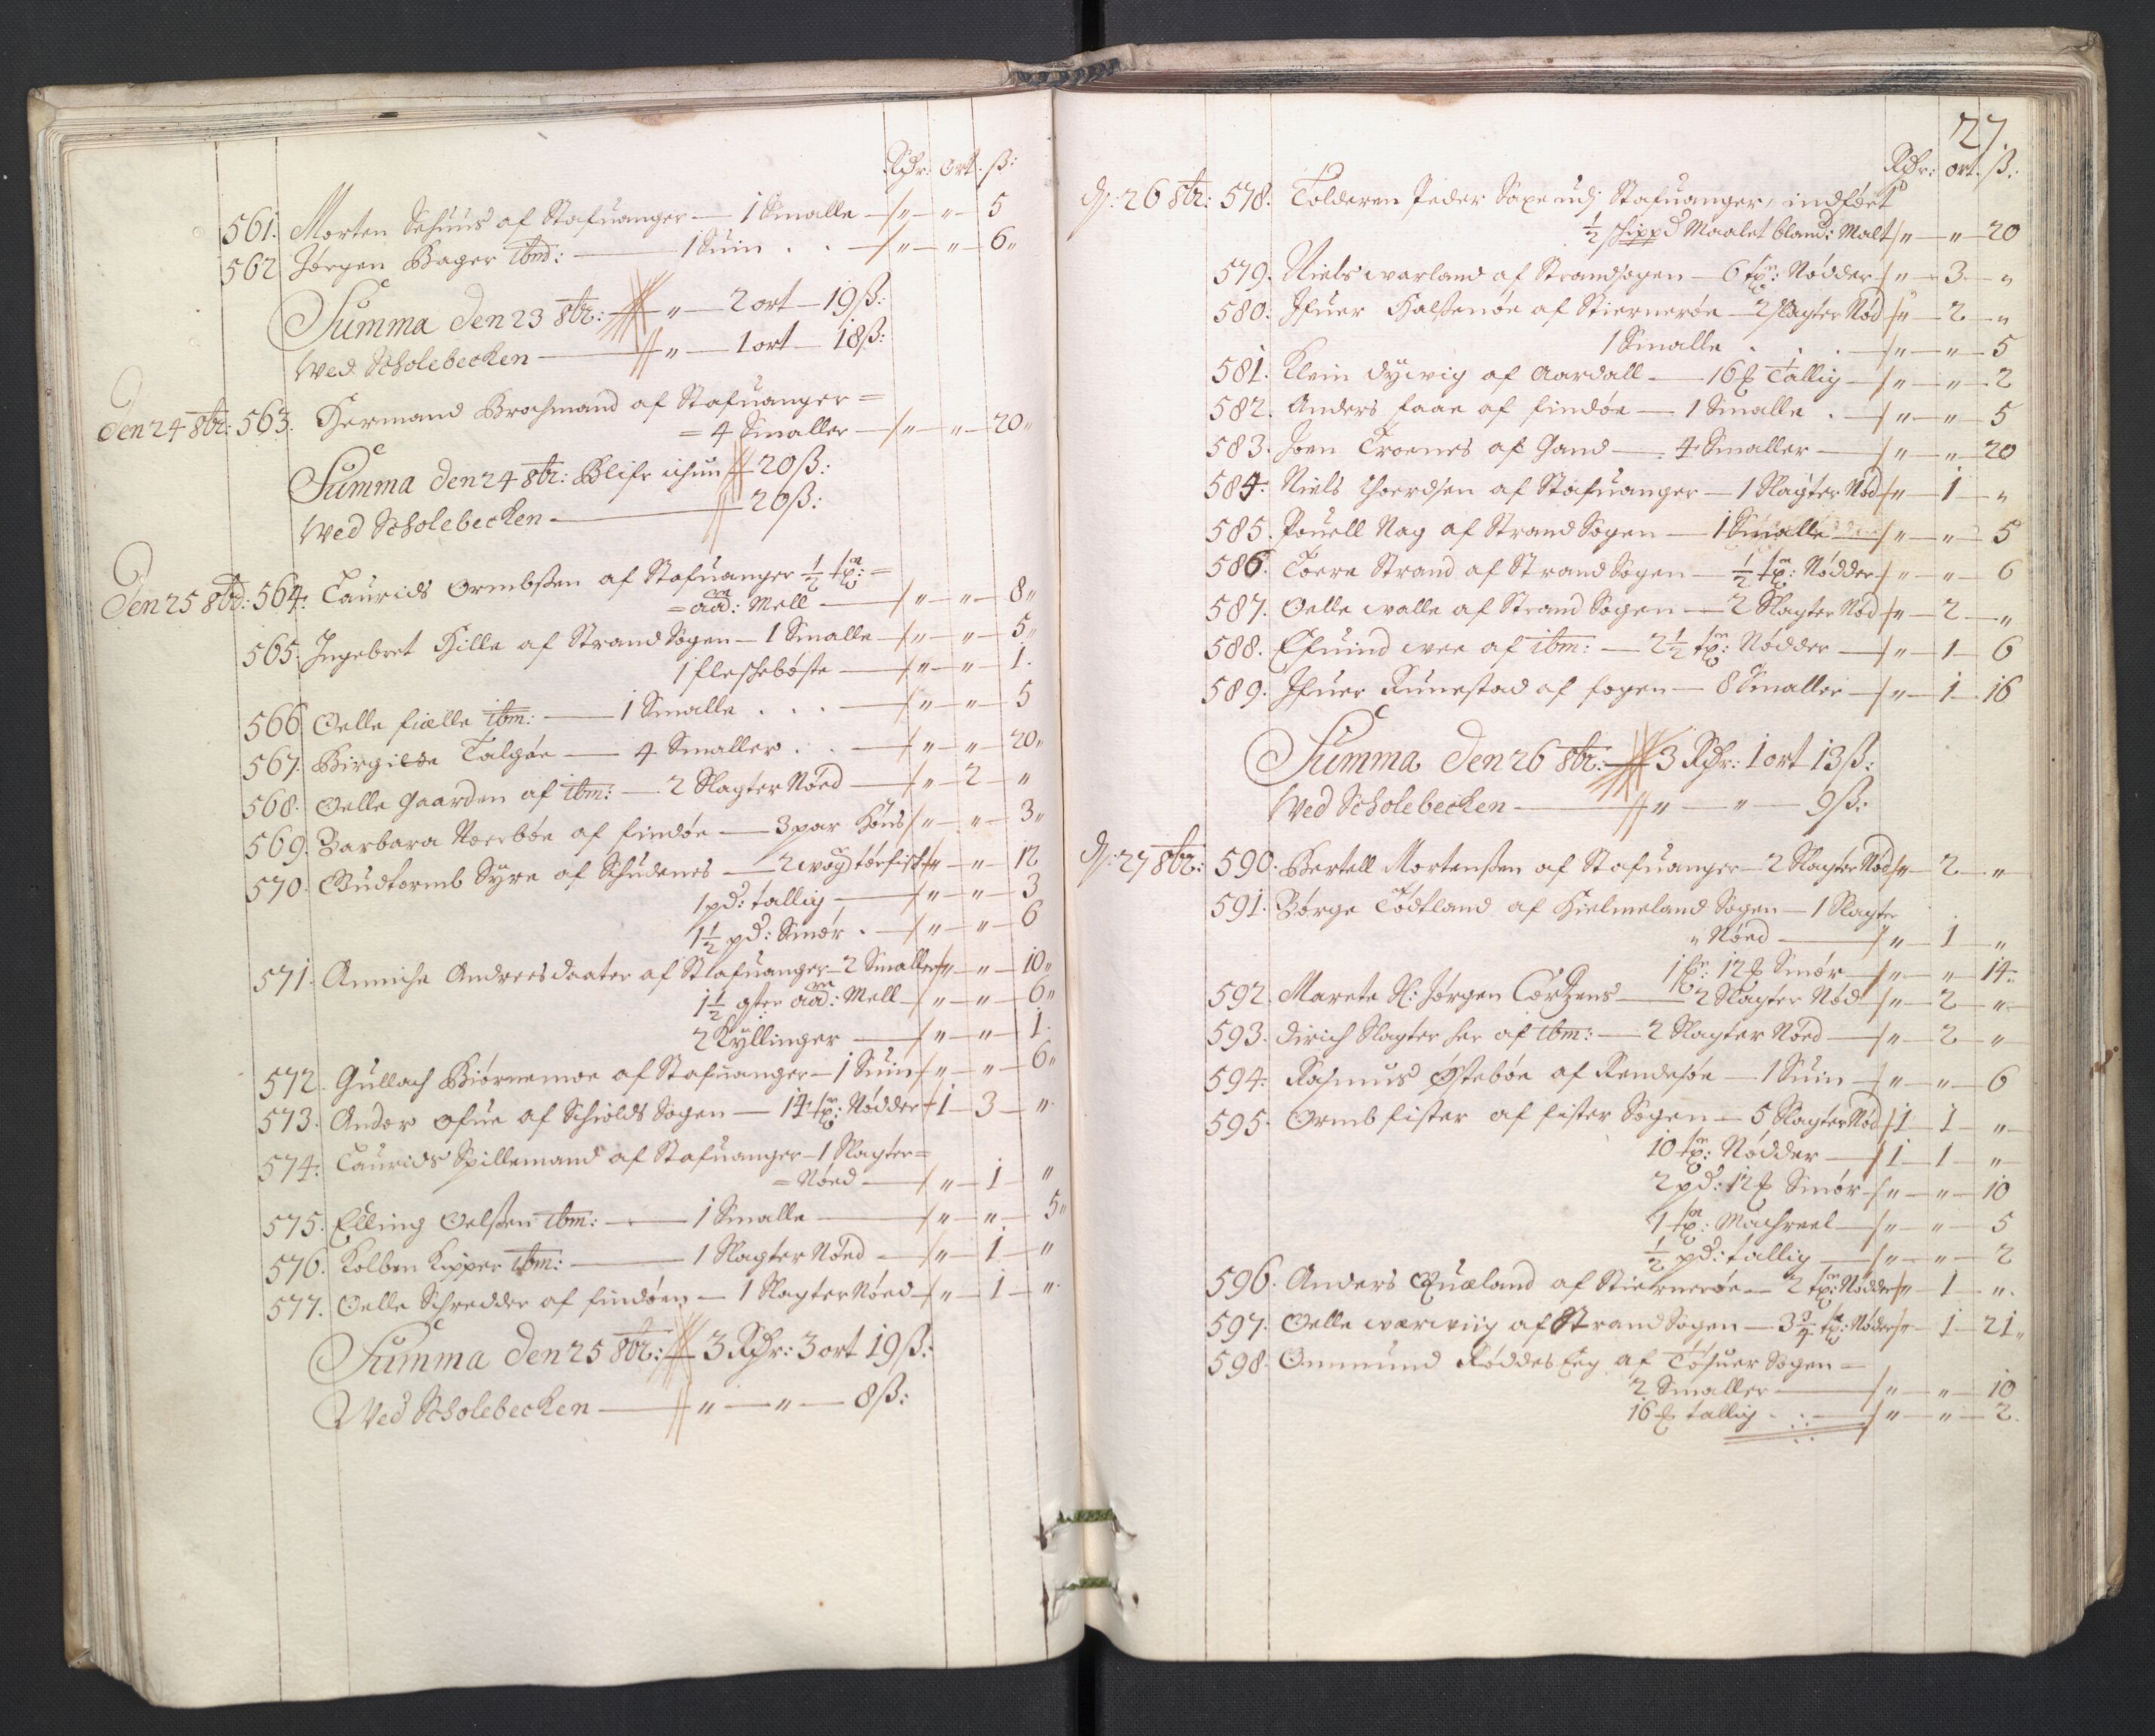 Rdr: ort. ß:
561. Morten Schuus af Stafuanger — 1 Smalle — " — " — 5
562 Jørgen Bager ibm: — 1 Suin — " — " — 6"
Summa den 23 8br: — " — 2 ort — 19 ß:
Wed Scholebecken — " — 1 ort — 18 ß:
Den 24 8br: 563. Hermand Brochmand af Stafuanger =
= 4 Smaller — " — " — 20"
Summa den 24 8br: Blifr ichun 20 ß:
Wed Scholebecken — 20 ß:
Den 25 8br: 564. Laurids Ormbßen af Stafuanger ½ tø: =
= aad: Mell — " — " — 8"
565. Ingebret Hille af Strand Sogen — 1 Smalle — " — " — 5"
1 fleschebøste — " — " — 1.
566 Oelle fiælle ibm: — 1 Smalle . . . — " — " — 5
567. Birgitte Talgøe — 4 Smaller . . — " — " — 20"
568. Oelle Gaarden af ibm: — 2 Slagter Nöed — " — 2 — "
569. Barbara Noerbøe af findøe — 3 par Høns — " — " — 3"
570. Gudtormb Syre af Schudenes — 2 wog tørfisk — " — " — 12
1 pd: tallig — " — " — 3
1½ pd: Smør . — " — " — 6
571. Anniche Andreesdaater af Stafuanger — 2 Smaller — " — " — 10"
1½ qter aad: Mell — " — " — 6"
2 Kyllinger — " — " — 1.
572. Gullach Biørnemoe af Stafuanger — 1 Suin — " — " — 6"
573. Ander ofue af Schiolds Sogen — 14 tø: Nødder — 1 — 3 — "
574. Laurids Spillemand af Stafuanger — 1 Slagter =
= Nöed — " — 1 — "
575. Elling Oelßen ibm: — 1 Smalle — " — " — 5"
576. Kolben Kipper ibm: — 1 Slagter Nöed — " — 1 — "
577. Oelle Schredder af findøen — 1 Slagter Nöed — " — 1 — "
Summa den 25 8br: — 3 Rdr: 3 ort 19 ß:
Wed Scholebecken — " — " — 8 ß:
27.
Rdr: ort. ß:
d: 26 8br: 578. Tolderen Peder Saxe udj Stafuanger, indført
½ schippd Maalet bland: Malt — " — " — 20
579. Niels warland af Strandsogen — 6 tø: Nødder — " — 3 — "
580. Ifuer Halßenøe af Stiernerøe — 2 slagter Nöd — " — 2 — "
1 Smalle . . . — " — " — 5
581. Klein dywig af Aardall — 16 ℔ Tallig — " — " — 2
582. Anders faae af findøe — 1 Smalle . — " — " — 5
583. Joen Troenes af Gand — 4 Smaller — " — " — 20
584. Niels Thoerdsen af Stafuanger — 1 Slagter Nöd — " — 1 — "
585. Pouell Nag af Strand Sogen — 1 Smalle — " — " — 5
586. Toere Strand af Strand Sogen — ½ tø: Nødder — " — " — 6
587. Oelle walle af Strand Sogen — 2 Slagter Nöd — " — 2 — "
588. Efuind wee af ibm: — 2½ tø: Nødder — " — 1 — 6
589. Ifuer Runestad af fogen — 8 Smaller — " — 1 — 16
Summa den 26 8br: — 3 Rdr: 1 ort 13 ß:
Wed Scholebecken — " — " — 9 ß:
d: 27 8br: 590. Bertell Mortenßen af Stafuanger — 2 Slagter Nöd — " — 2 — "
591. Børge Tødtland af Hielmeland Sogen — 1 Slagter
" Nöed — " — 1 — "
1 12 ℔ Smør — " — " — 14
592. Marete Sl: Jørgen Cortzens — 2 Slagter Nöd — " — 2 — "
593. Dirich Slagter her af ibm: — 2 Slagter Nöed — " — 2 — "
594. Rasmus Østebøe af Rendesøe — 1 Suin — " — " — 6
595. Ormb fister af fister Sogen — 5 Slagter Nöd — 1 — 1 — "
10 tø: Nødder — 1 — 1 — "
2 pd: 12 ℔ Smør — " — " — 10
1 tø: Machreel — " — " — 5
½ pd: tallig — " — " — 2
596. Anders Quæland af Stiernerøe — 2 tø: Nødder — " — 1 — "
597. Oelle warwiig af Strand Sogen — 3¾ tø: Nøder — " — 1 — 21"
598. Ommund Røddes Eeg af Tøsuer Sogen =
2 Smaller — " — " — 10
16 ℔ tallig . . : — " — " — 2.